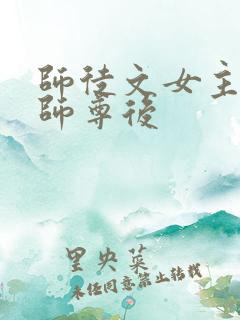 師徒文女主
師尊後
里央菜
未经同意禁止转载